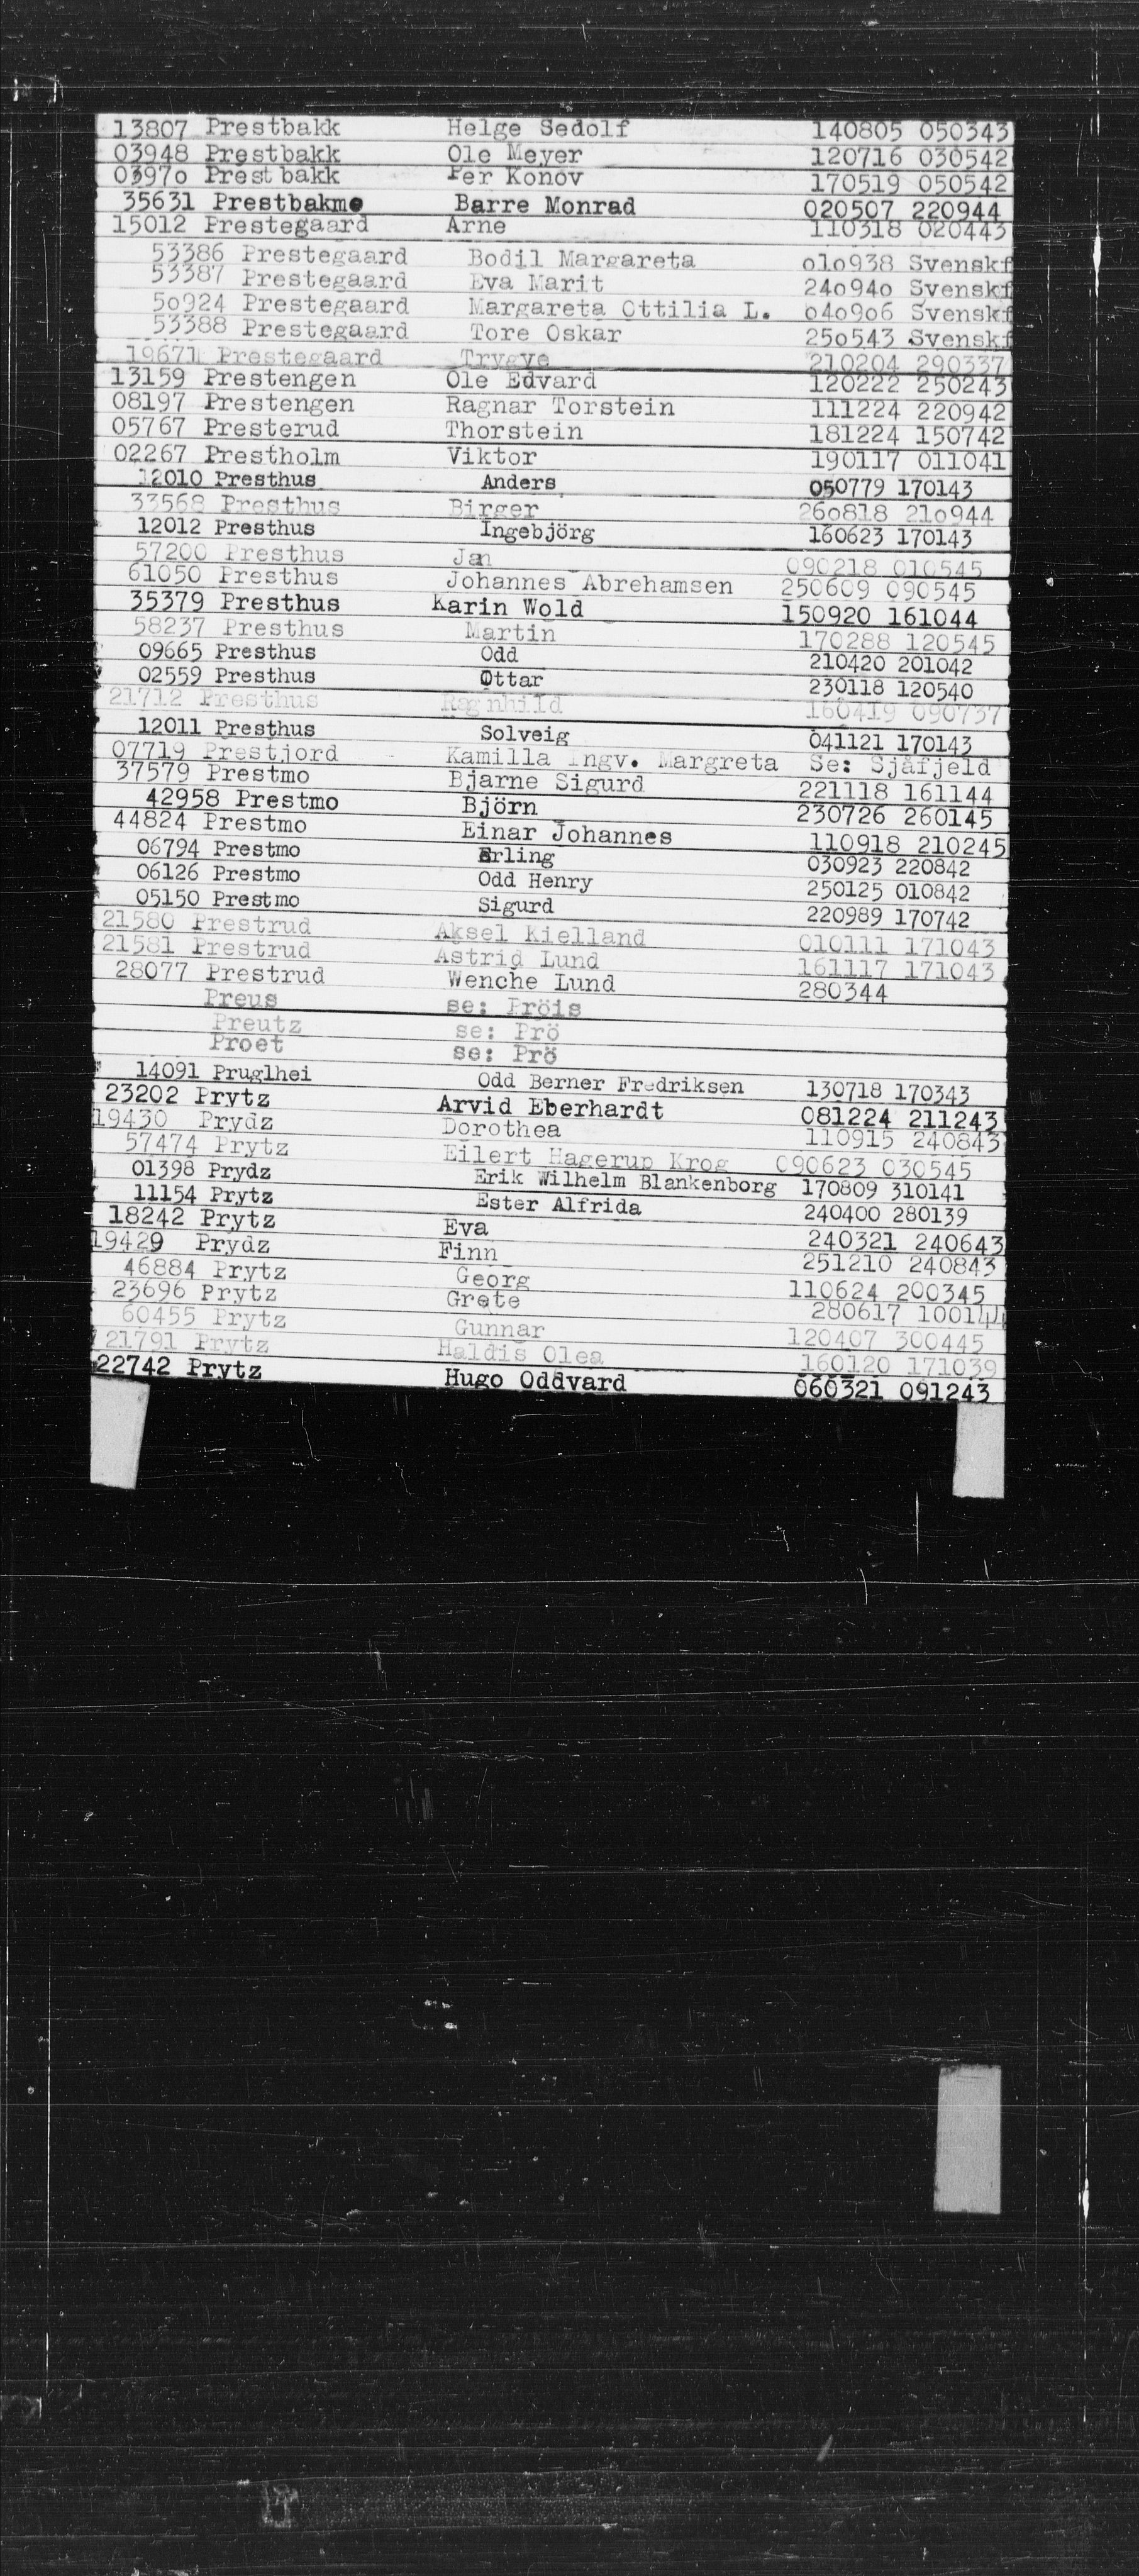 13807 Prestbakk Helge Sedolf 140805 050343
03948 Prestbakk Ole Meyer 120716 030542
03970 Prestbakk Per Konov 170519 050542
35631 Prestbakmo Barre Monrad 020507 220944
15012 Prestegaard Arne 110318 020443
53386 Prestegaard Bodil Margareta 010938 Svenskf
53387 Prestegaard Eva Marit 240940 Svenskf
50924 Prestegaard Margareta Ottilia L. 040906 Svenskf
53388 Prestegaard Tore Oskar 250543 Svenskf
19671 Prestegaard Trygve 210204 290337
13159 Prestengen Ole Edvard 120222 250243
08197 Prestengen Ragnar Torstein 111224 220942
05767 Presterud Thorstein 181224 150742
02267 Prestholm Viktor 190117 011041
12010 Presthus Anders 050779 170143
33568 Presthus Birger 260818 210944
12012 Presthus Ingebjörg 160623 170143
57200 Presthus Jan 090218 010545
61050 Presthus Johannes Abrehamsen 250609 090545
35379 Presthus Karin Wold 150920 161044
58237 Presthus Martin 170288 120545
09665 Presthus Odd 210420 201042
02559 Presthus Ottar 230118 120540
21712 Presthus Ragnhild 160419 090737
12011 Presthus Solveig 041121 170143
07719 Prestjord Kamilla Ingv. Margreta Se: Sjåfjeld
37579 Prestmo Bjarne Sigurd 221118 161144
42958 Prestmo Björn 230726 260145
44824 Prestmo Einar Johannes 110918 210245
06794 Prestmo Erling 030923 220842
06126 Prestmo Odd Henry 250125 010842
05150 Prestmo Sigurd 220989 170742
21580 Prestrud Aksel Kielland 010111 171043
21581 Prestrud Astrid Lund 161117 171043
28077 Prestrud Wenche Lund 280344
Preus se: Pröis
Preutz se: Prö
Proet se: Prö
14091 Pruglhei Odd Berner Fredriksen 130718 170343
23202 Prytz Arvid Eberhardt 081224 211243
19430 Prydz Dorothea 110915 240843
57474 Prytz Eilert Hagerup Krog 090623 030545
01398 Prydz Erik Wilhelm Blankenborg 170809 310141
11154 Prytz Ester Alfrida 240400 280139
18242 Prytz Eva 240321 240643
19429 Prydz Finn 251210 240843
46884 Prytz Georg 110624 200345
23696 Prytz Grete 280617 100144
60455 Prytz Gunnar 120407 300445
21791 Prytz Haldis Olea 160120 171039
22742 Prytz Hugo Oddvard 060321 091243